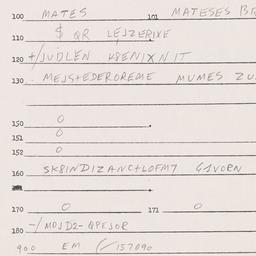 100 MATES 101 MATESES
110 $ QR LEJZERIXE
120 +/JUDLEN
130 MEJS+EDEROREME MUMES
150 0
151 0
152 0
160 SK8INDIZANC+LOFM7 G5VORN
170 0 171 0
180 -/MOJD2-QPEJOR
900 EM (/157090